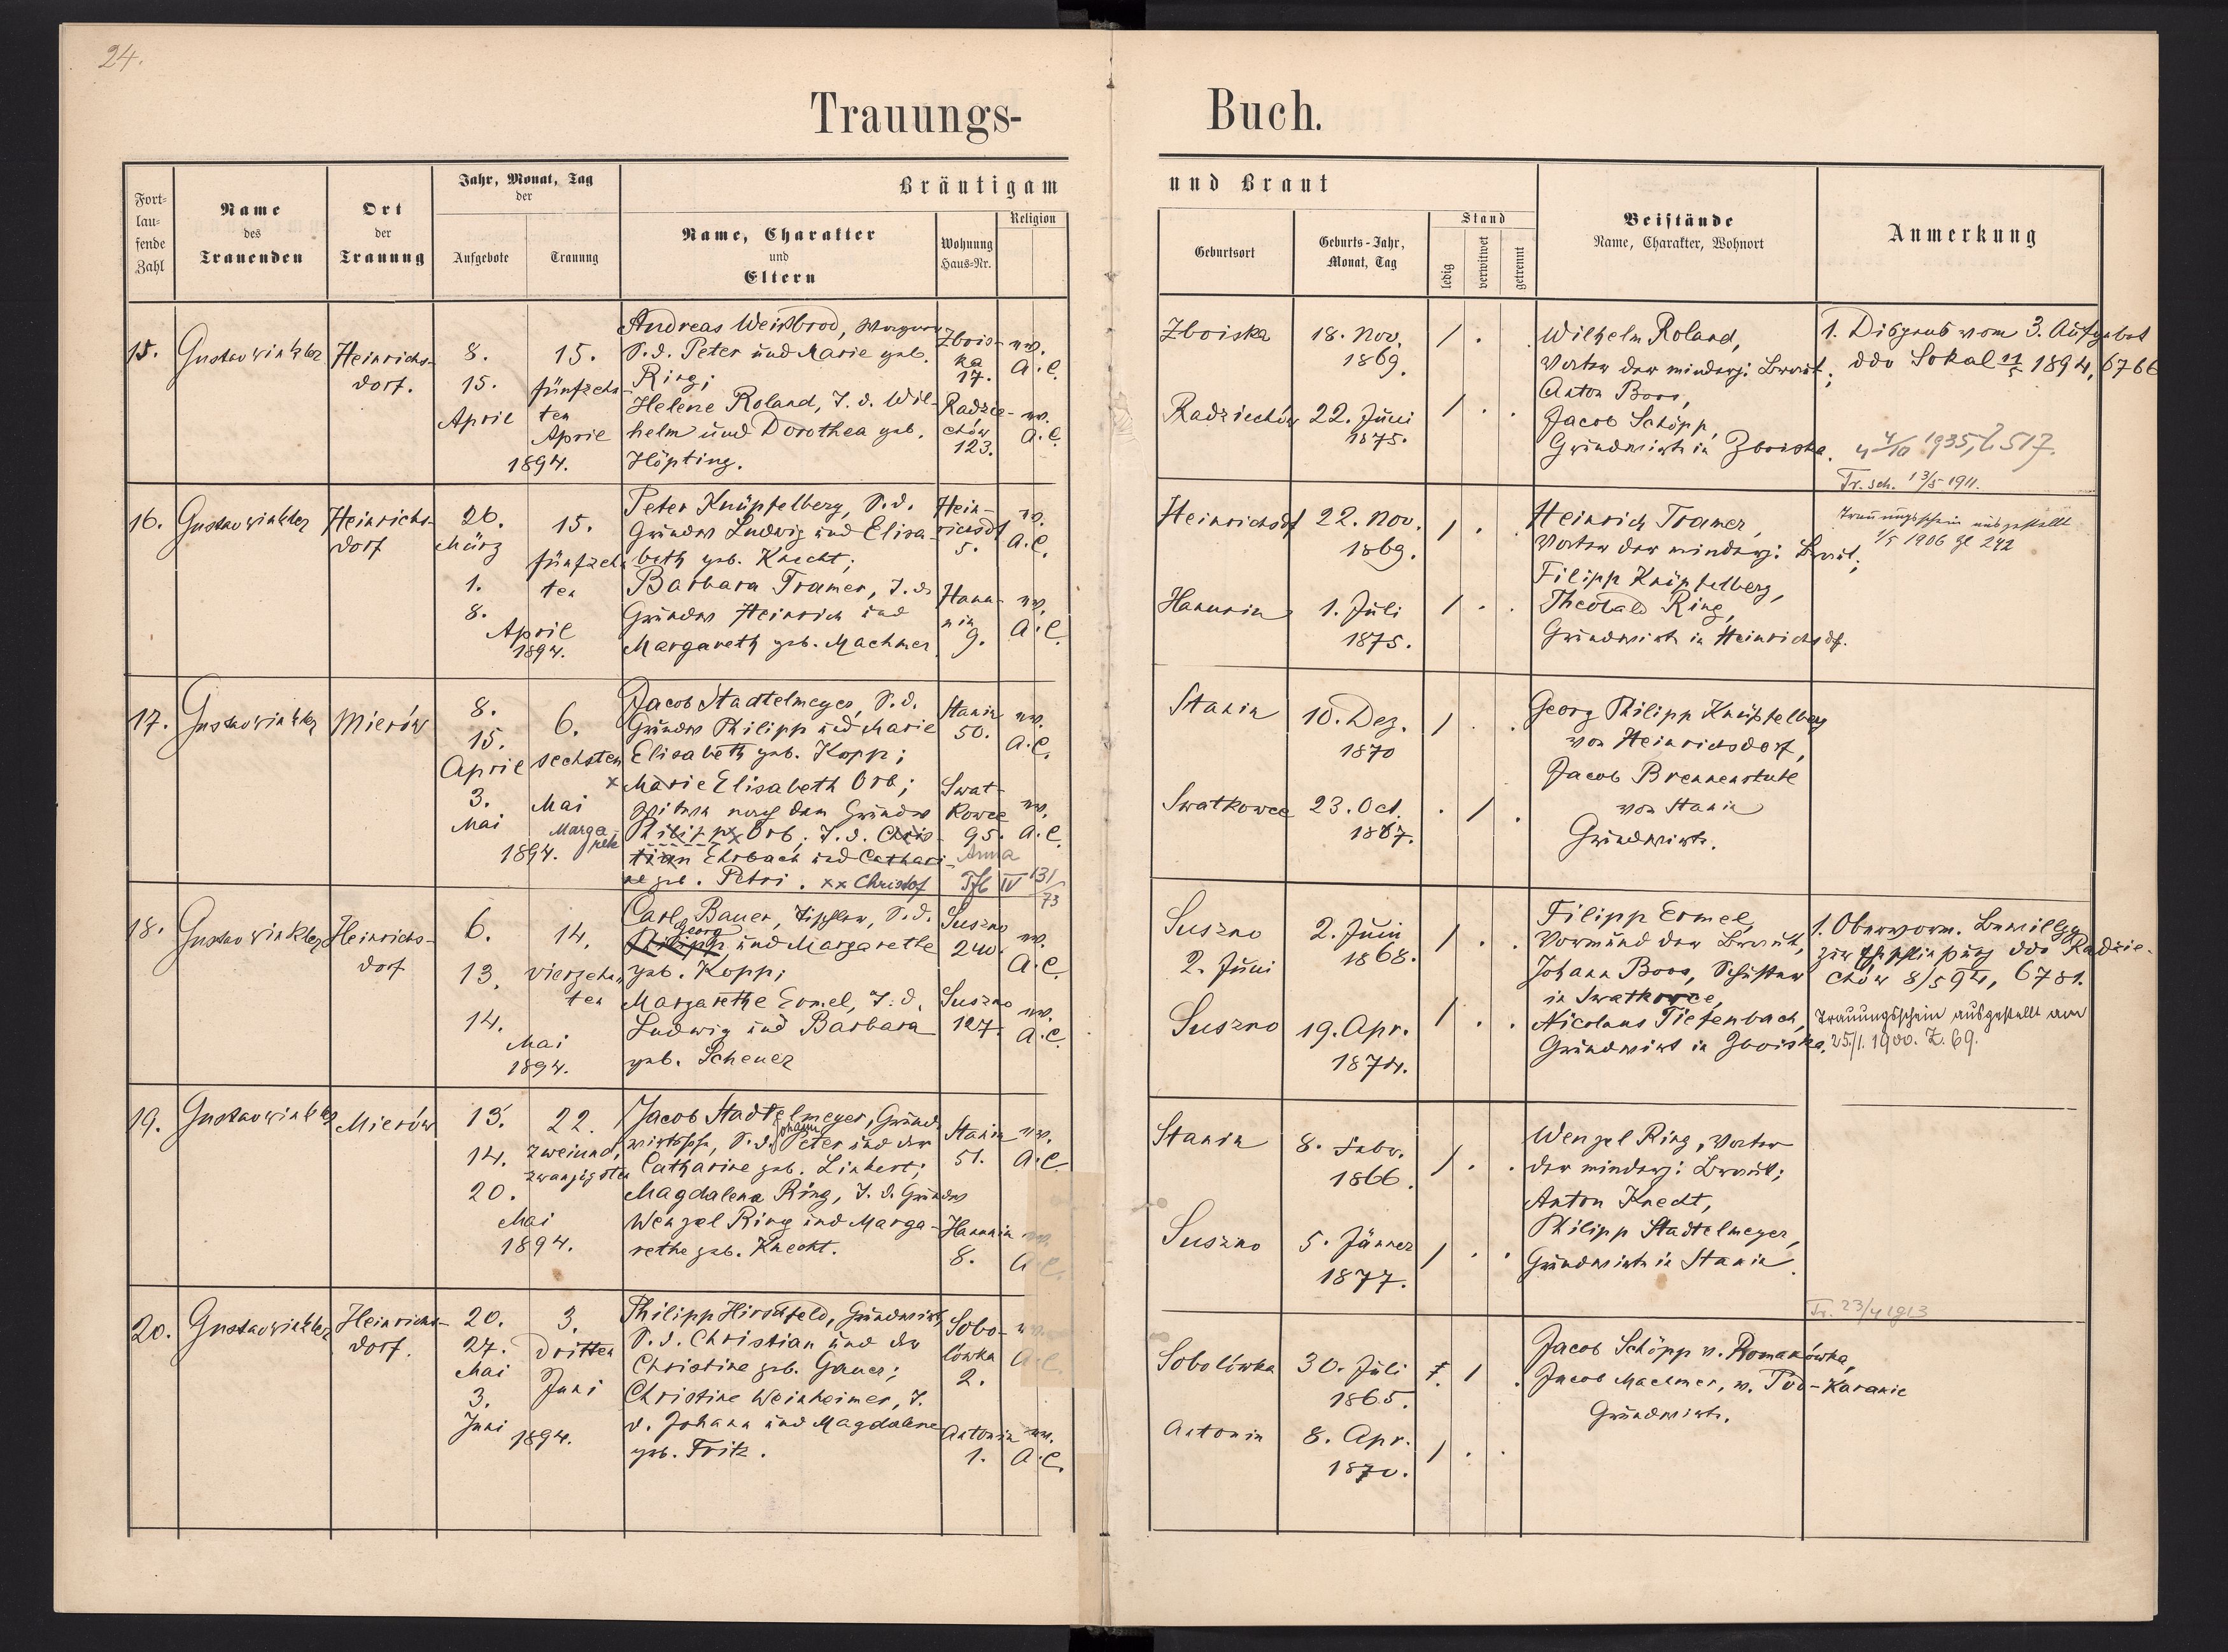 24.
Trauungs-
Buch.
Fort-
lau-
fende
Zahl
Name
des
Trauenden
Ort
der
Trauung
Jahr, Monat, Tag
der
Aufgebote
Trauung
Bräutigam
Name, Charakter
und
Eltern
Wohnung
Haus-Nr.
Religion
und Braut
Geburtsort
Geburts-Jahr,
Monat, Tag
Stand
ledig
verwitwet
getrennt
Beistände
Name, Charakter, Wohnort
Anmerkung
15.
Gustav Winkler
Heinrichs-
dorf.
8.
15.
April
15.
fünfzehn-
ten
April
1894.
Andreas Weissbrod, Wagner
S. d. Peter und Marie geb.
Ring;
Helene Roland, T. d. Wil-
helm und Dorothea geb.
Höpting.
Zbois-
ka
17.
Radzie-
chów
123.
ev.
A. C.
ev.
A. C.
Zboiska
18. Nov.
1869.
Radziechów
22. Juni
1875.
Wilhelm Roland,
Vater der minderj: Braut;
Anton Boos,
Jacob Schöpp,
Grundwirte in Zboiska.
1. Dispens vom 3. Aufgebot
ddo Sokal 11/5 1894, 6766
4/10 1935, Z 517.
Tr. sch. 13/5 1911.
16.
Gustav Winkler
Heinrichs-
dorf
26.
März
1.
8.
April
1894.
15.
fünfzehn
ten
Peter Knüpfelberg, S. d.
Grundw Ludwig und Elisa-
beth geb. Knecht;
Barbara Tramer, T. d.
Grundw Heinrich und
Margareth geb. Machmer
Hein-
richsdf
5.
Hanu-
nin
9.
ev.
A. C.
ev.
A. C.
Heinrichsdf
22. Nov.
1869.
Hanunin
1. Juli
1875.
Heinrich Tramer,
Vater der minderj: Braut;
Filipp Knüpfelberg,
Theobald Ring,
Grundwirte in Heinrichsdf.
Trauungsschein ausgestellt
1/5 1906 Zl 242
17.
Gustav Winkler
Mierów
8.
15.
April
3.
Mai
1894.
6.
sechsten
Mai
Marga
rete
Jacob Stadtelmeyer, S. d.
Grundw Philipp und Marie
Elisabeth geb. Kopp;
x Marie Elisabeth Orb;
Witwe nach dem Grundw
Philipp Orb, T. d. Chris-
tian Ehrbach und Cathari-
ne geb. Petri. xx Christof
Stanin
50.
Swat-
kowce
95.
Anna
Tfb IV 131/73
ev.
A. C.
ev.
A. C.
Stanin
10. Dez.
1870
Swatkowce
23. Oct.
1867.
Georg Philipp Knüpfelberg
von Heinrichsdorf,
Jacob Brennenstuhl
von Stanin
Grundwirte.
18.
Gustav Winkler
Heinrichs-
dorf
6.
13.
14.
Mai
1894.
14.
vierzehn
ten
Carl Bauer, Tischler, S. d.
Georg
Philipp und Margarethe
geb. Kopp;
Margarethe Ermel, T. d.
Ludwig und Barbara
geb. Scheuer
Suszno
240.
Suszno
127.
ev.
A. C.
ev.
A. C.
Suszno
2. Juni
2. Juni
1868.
Suszno
19. Apr.
1874.
Filipp Ermel,
Vormund der Braut,
Johann Boos, Schuster
in Swatkowce,
Nicolaus Tiefenbach,
Grundwirt in Zboiska.
1. Obervorm. Bewillgg
zur Eheschließung ddo Radzie-
chów 8/5 94, 6781.
Trauungsschein ausgestellt am
25/1. 1900. Z. 69.
19.
Gustav Winkler
Mierów
13.
14.
20.
Mai
1894.
22.
zweiund,
zwanzigsten
Jacob Stadtelmeyer, Grund-
wirtssohn, S. d. Johann Peter und der
Catharine geb. Linkert;
Magdalena Ring, T. d. Grundw
Wenzel Ring und Marga-
rethe geb. Knecht.
Stanin
51.
Hanunin
8.
ev.
A. C.
ev.
A. C.
Stanin
8. Febr.
1866.
Suszno
5. Jänner
1877.
Wenzel Ring, Vater
der minderj: Braut;
Anton Knecht,
Philipp Stadtelmeyer,
Grundwirte in Stanin.
Tr. 23/4 1913
20.
Gustav Winkler
Heinrichs-
dorf.
20.
27.
Mai
3.
Juni
1894.
3.
dritten
Juni
Philipp Hirschfeld, Grundwirt,
S. d. Christian und der
Christine geb. Gauer;
Christine Weinheimer, T.
d. Johann und Magdalene
geb. Fritz.
Sobo-
lówka
2.
Antonin
1.
ev.
A. C.
ev.
A. C.
Sobolówka
30. Juli
1865.
Antonin
8. Apr.
1870.
Jacob Schöpp v. Romanówka,
Jacob Machmer, v. Tod-Karanie
Grundwirte.